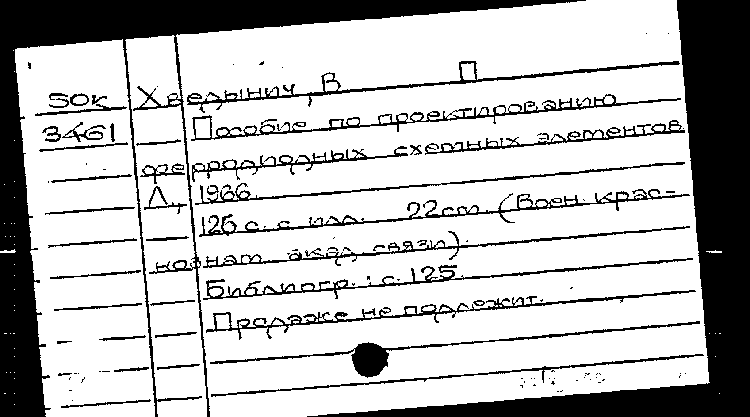 50К Хведынич, В П
3461 Пособие по проектированию
ферродиодных схемных элементов
Л., 1966.
126 с. с илл. 22см. (Воен. крас-
нознам акад связи).
Библиогр.: с. 125.
Продаже не подлежит.